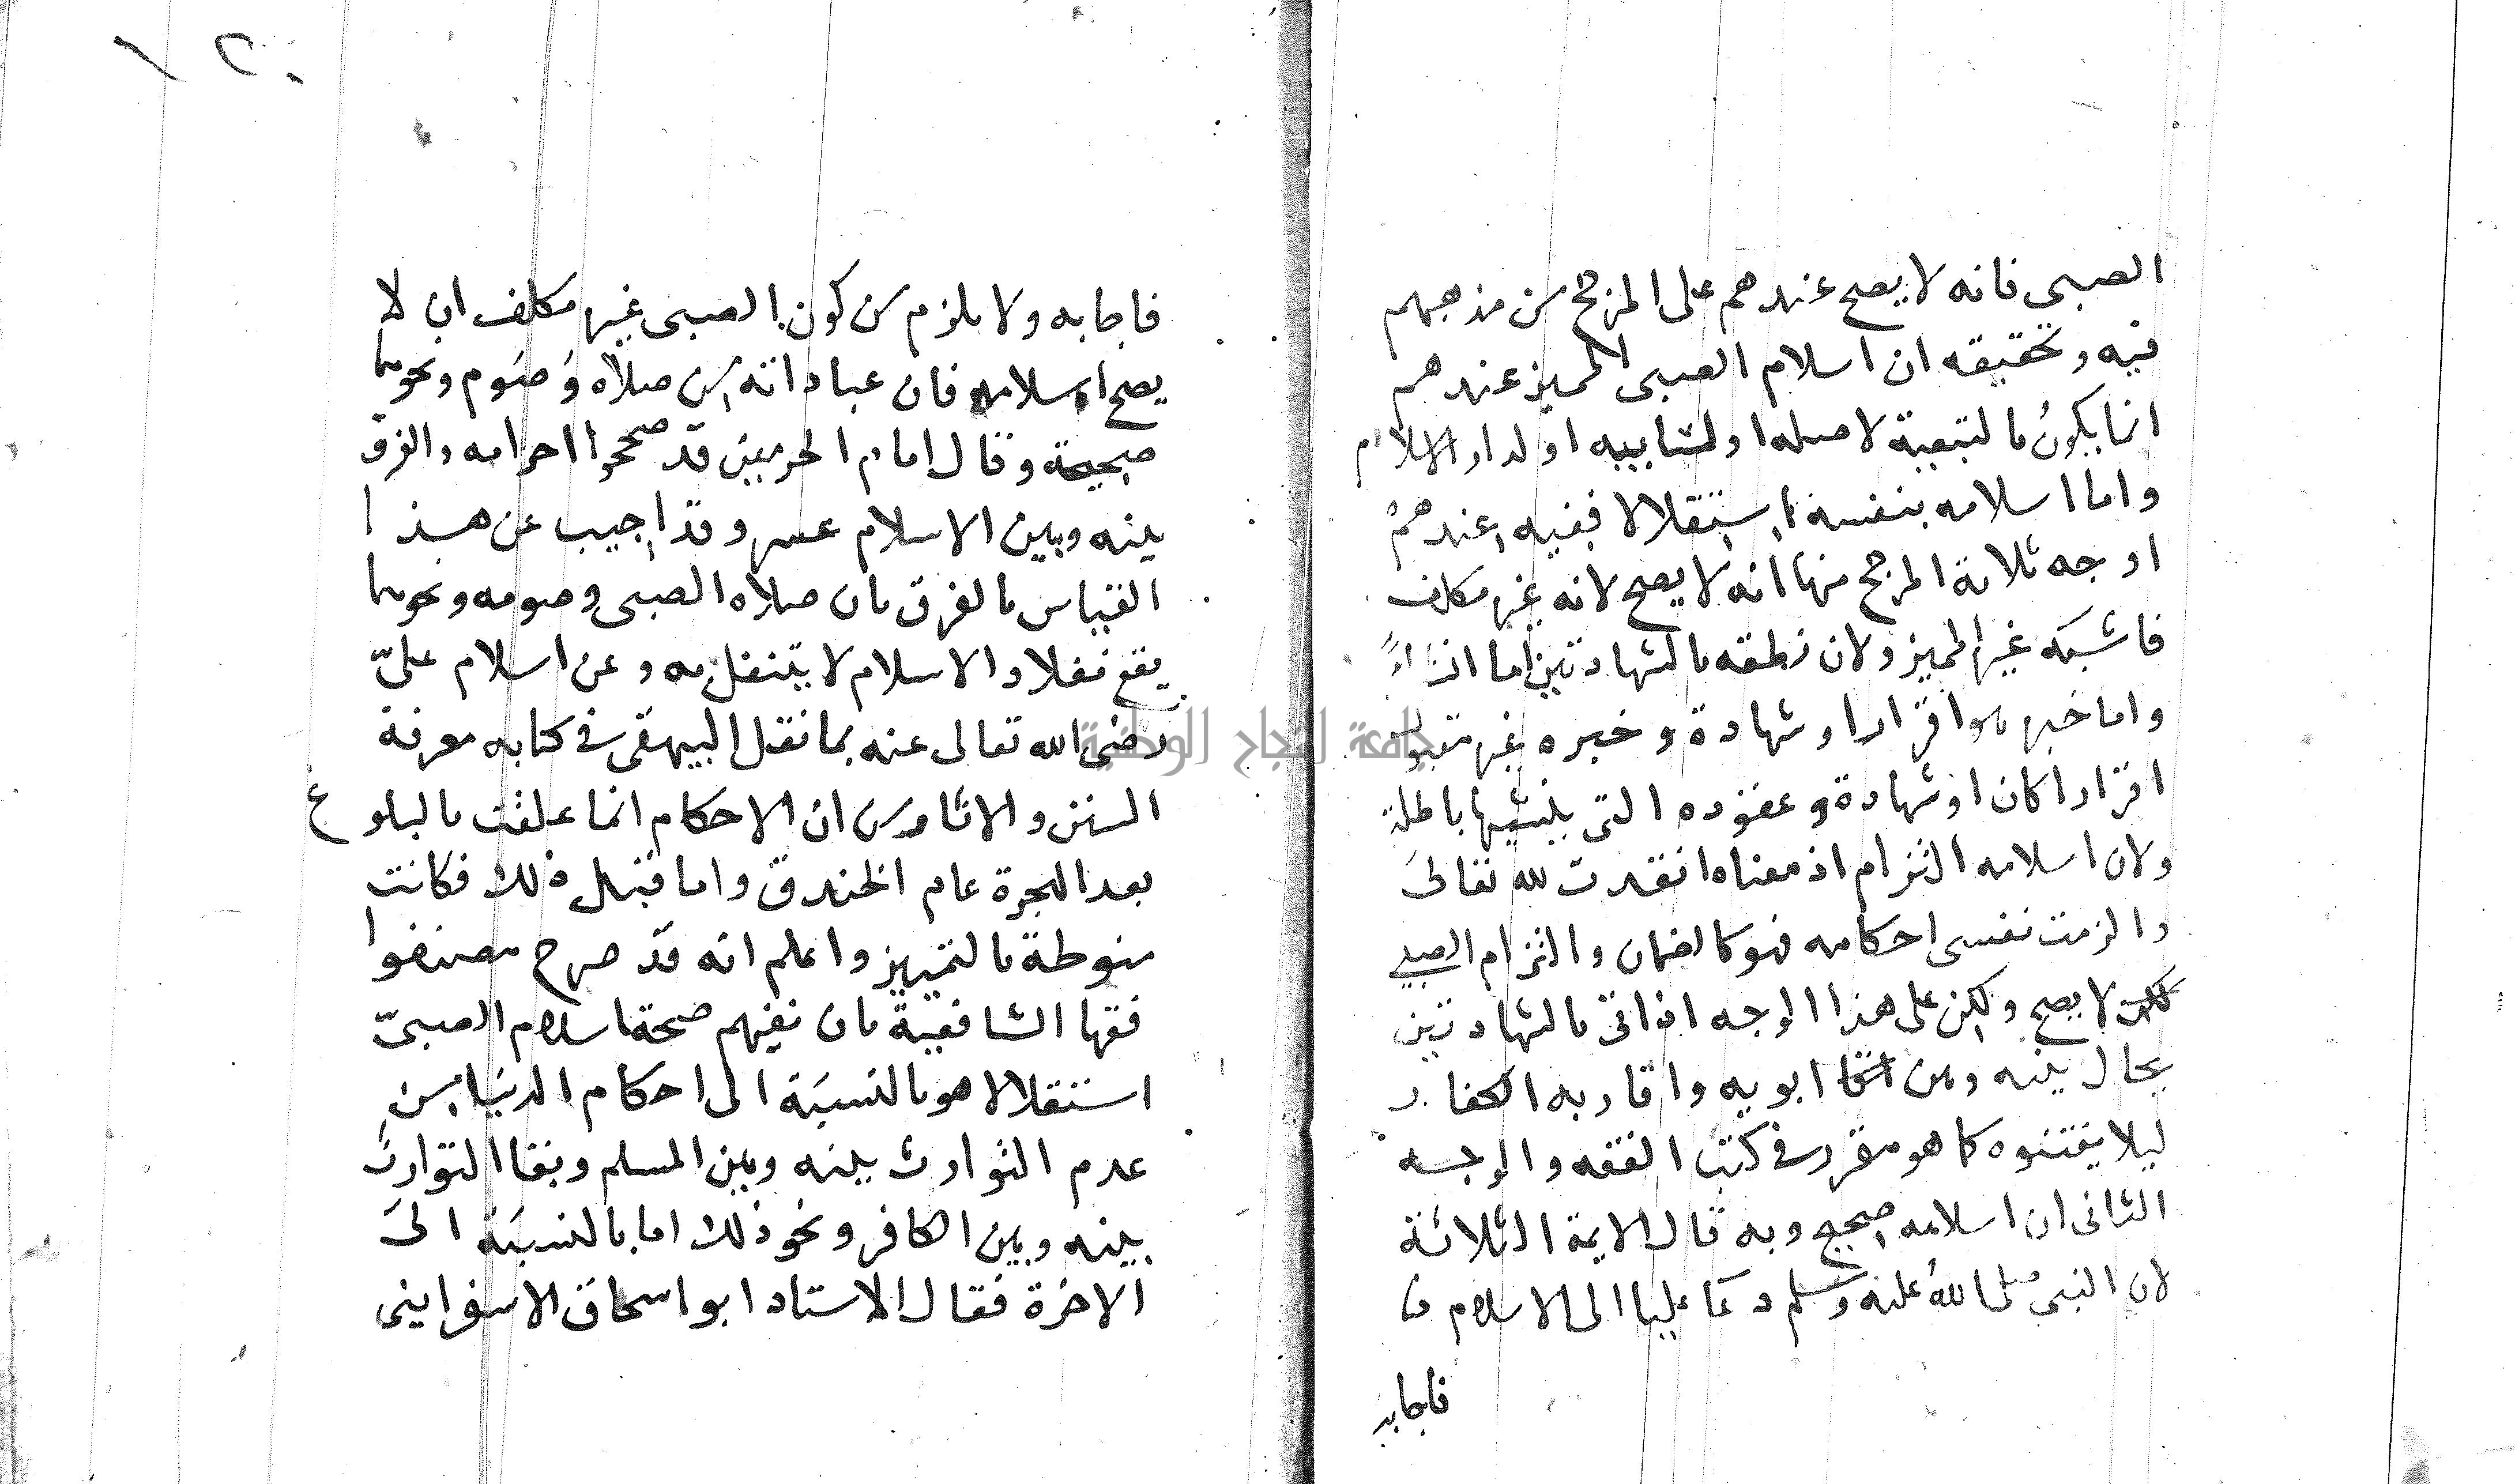 الصبى فانه لا يصح عندهم على المرجح من مذهبهم
فيه وتحقيقه ان اسلام الصبى المميز عندهم
انما يكون بالتبعية لاصله او لسابيه او لدار الاسلام
واما اسلامه بنفسه استقلالا ففيه عندهم
اوجه ثلاثة المرجح منها انه لا يصح لانه غير مكلف
فاشبه غير المميز ولان نطقه بالشهادتين اما انشاء
واما خبر سوا اقرارا وشهادة وخبره غير مقبول
اقرارا كان او شهادة وعقوده التى ينشيها باطلة
ولان اسلامه التزام اذ معناه انقدت لله تعالى
والزمت نفسى احكامه فهو كالضمان والتزام الصبى
لا يصح ولكن على هذا الوجه اذا اتى بالشهادتين
يحال بينه وبين ابويه واقاربه الكفار
ليلا يفتنوه كما هو مقرر فى كتب الفقه والوجه
الثانى ان اسلامه صحيح وبه قال الايمة الثلاثة
لان النبى صلى الله عليه وسلم دعا عليا الى الاسلام فا
فاجابه
٢٠
فاجابه ولا يلزم من كون الصبى غير مكلف ان لا
يصح اسلامه فان عباداته من صلاه وصوم ونحوهما
صحيحة وقال امام الحرمين قد صححوا احرامه والفرق
بينه وبين الاسلام عسر وقد اجيب عن هذا
القياس بالفرق بان صلاه الصبى وصومه ونحوهما
يقع نفلا والاسلام لا يتنفل به وعن اسلام علىّ
رضى الله تعالى عنه بما نقل البيهقى فى كتابه معرفة
السنن والاثار من ان الاحكام انما علقت بالبلوغ
بعد الهجرة عام الخندق واما قبل ذلك فكانت
منوطة بالتمييز واعلم انه قد صرح مصنفوا
فقها الشافعية بان نفيهم صحة اسلام الصبىّ
استقلالا هو بالنسبة الى احكام الدنيا من
عدم التوارث بينه وبين المسلم وبقا التوارث
بينه وبين الكافر ونحو ذلك اما بالنسبة الى
الاخرة فقال الاستاد ابو اسحاق الاسفراينى
جامعة النجاح الوطنية